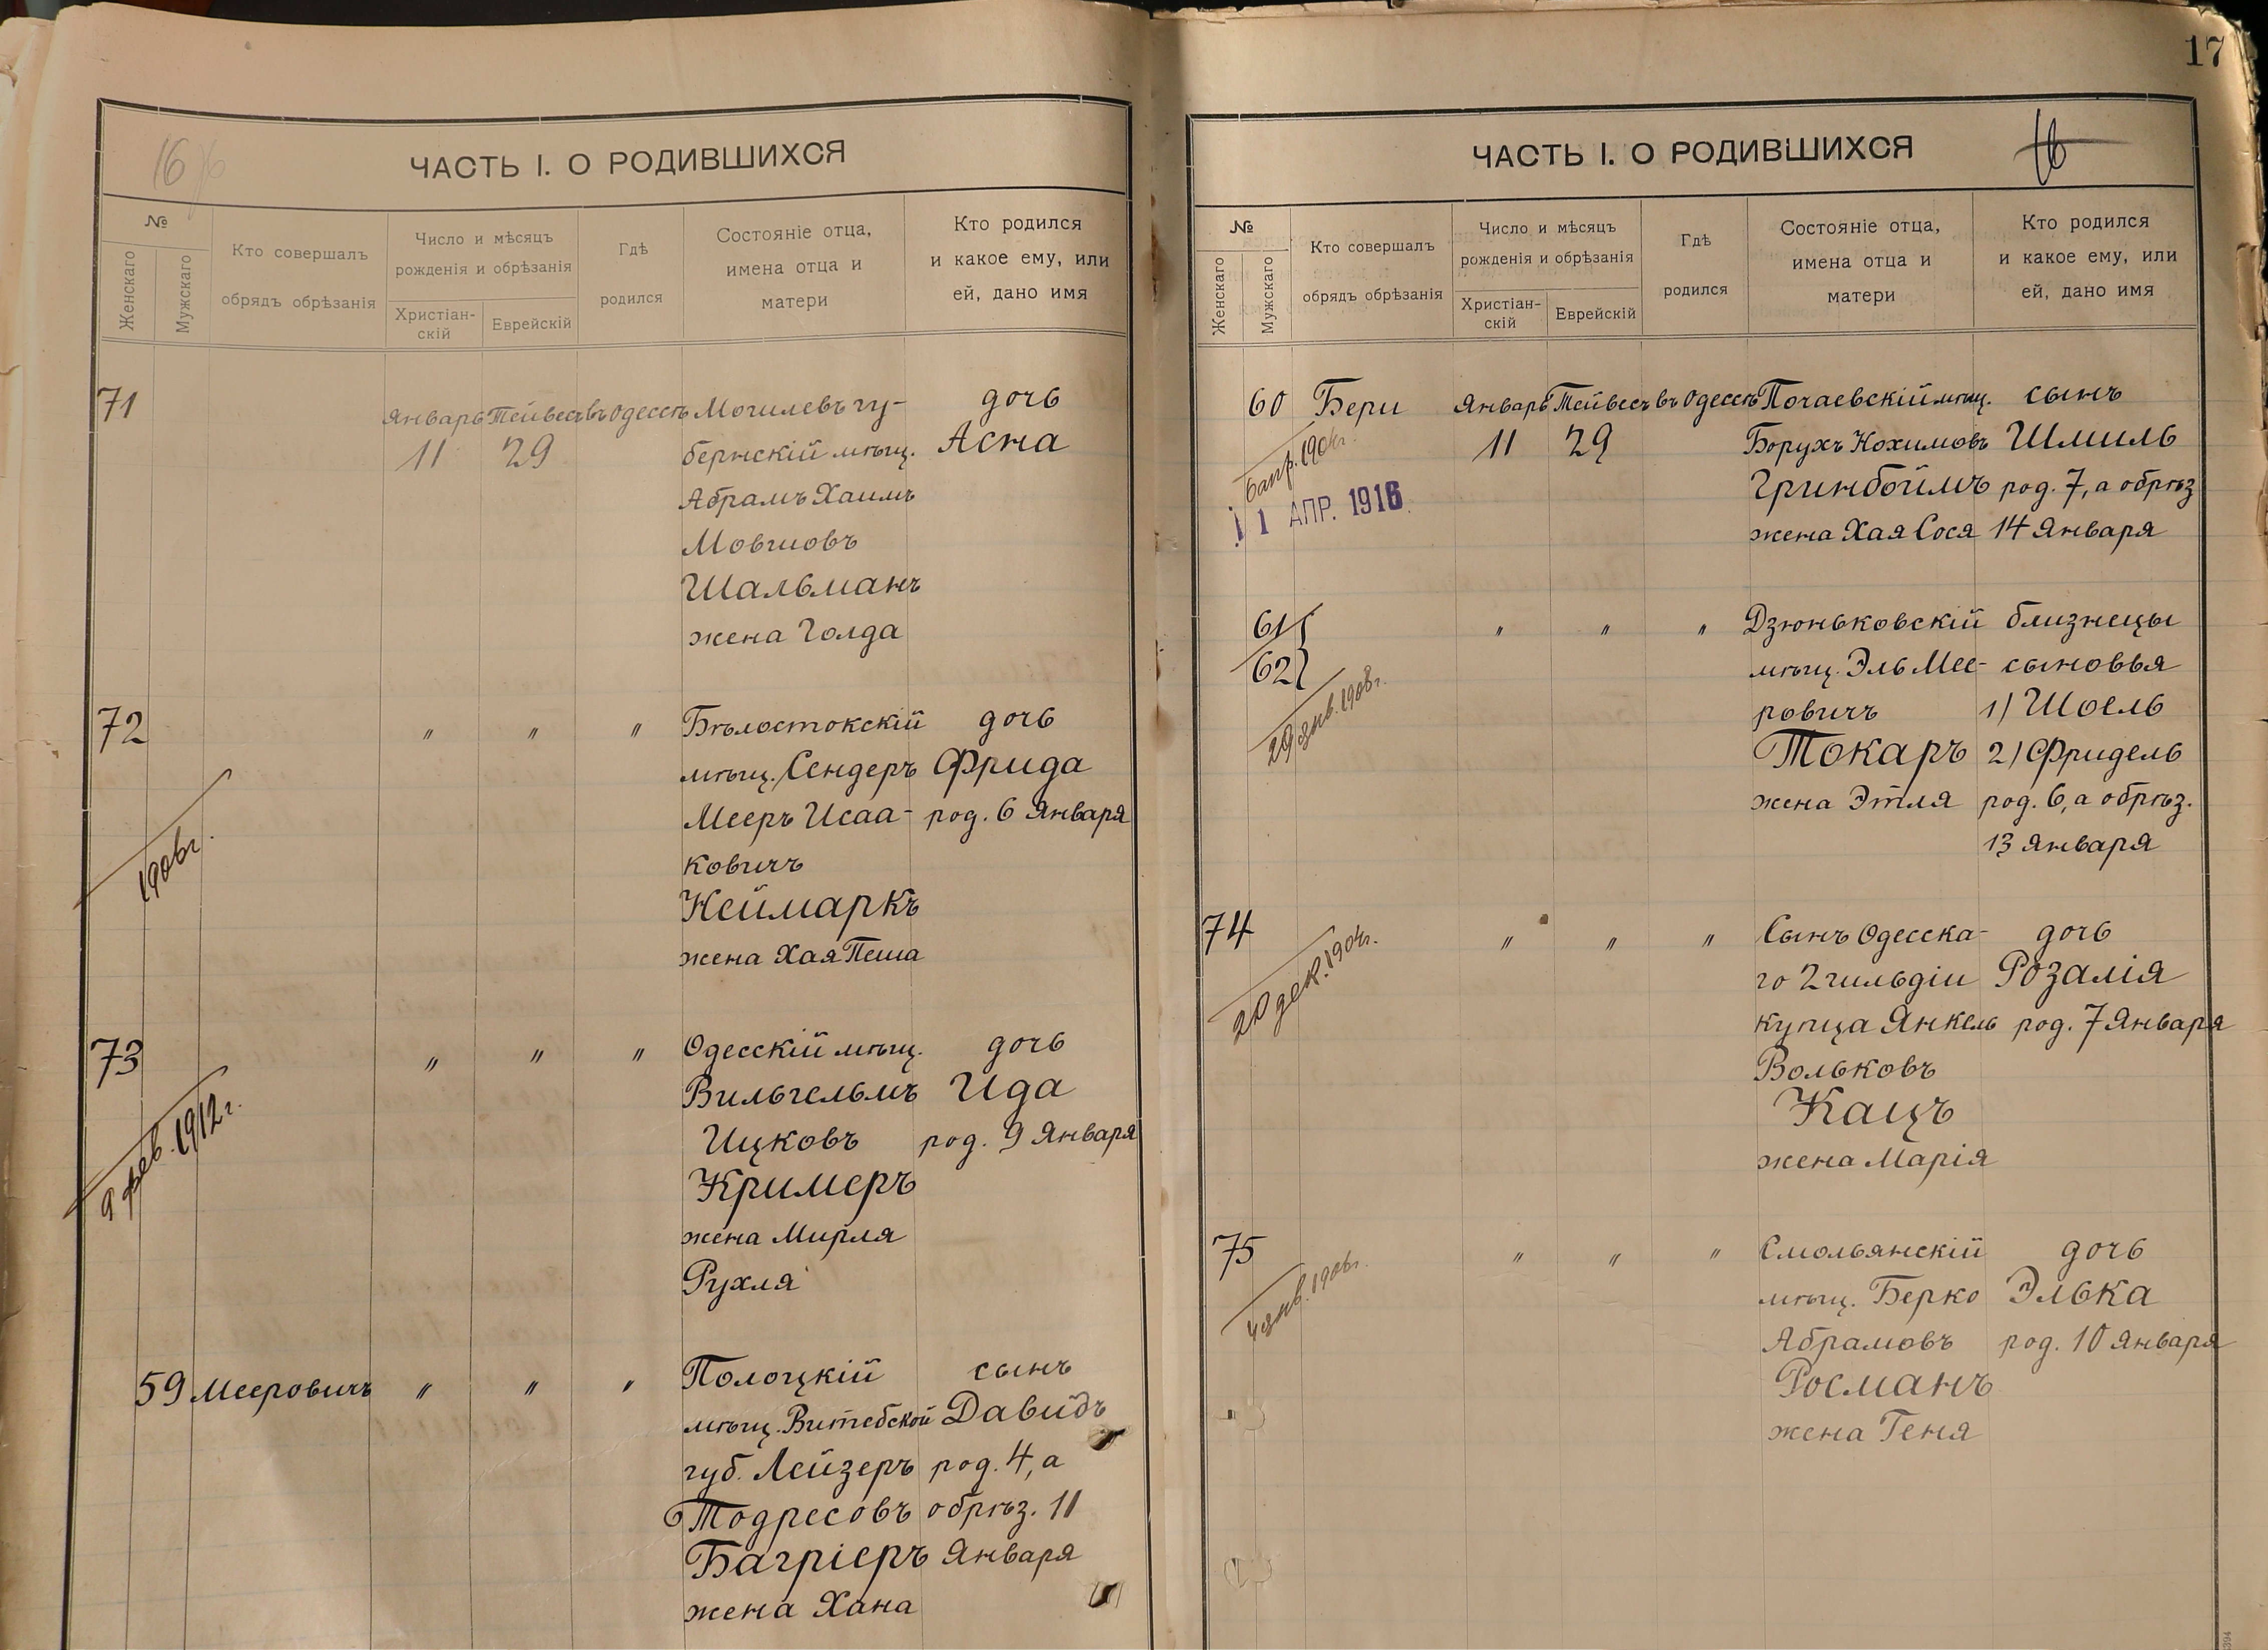 16
ЧАСТЬ I. О РОДИВШИХСЯ
№
Женскаго
Мужскаго
Кто совершалъ
обрядъ обрѣзанія
Число и мѣсяцъ
рожденія и обрѣзанія
Христіан-
скій
Еврейскій
Гдѣ
родился
Состояніе отца,
имена отца и
матери
Кто родился
и какое ему, или
ей, дано имя
71 Январь Тейвесъ въ Одессѣ Могилевъ гу- дочь
11 29 бернскій мѣщ. Асна
Абрамъ Хаимъ
Мовшовъ
Шальманъ
жена Голда
72 " " " Бѣлостокскій дочь
мѣщ. Сендеръ Фрида
Мееръ Исаа- род. 6 Января
ковичъ
1906г.
Неймаркъ
жена Хая Пеша
73 " " " Одесскій мѣщ. дочь
Вильгельмъ Ида
9 фев. 1912г.
Ицковъ род. 9 Января
Кримеръ
жена Мирля
Рухля
59 Мееровичъ " " " Полоцкій сынъ
мѣщ. Витебской Давидъ
губ. Лейзеръ род. 4, а
Тодресовъ обрѣз. 11
Багріеръ Января
жена Хана
17
ЧАСТЬ I. О РОДИВШИХСЯ
16
№
Женскаго
Мужскаго
Кто совершалъ
обрядъ обрѣзанія
Число и мѣсяцъ
рожденія и обрѣзанія
Христіан-
скій
Еврейскій
Гдѣ
родился
Состояніе отца,
имена отца и
матери
Кто родился
и какое ему, или
ей, дано имя
60 Бери Январь Тейвесъ въ Одессѣ Почаевскій мѣщ. сынъ
11 29 Борухъ Нохимовъ Шмиль
Гринбоймъ род. 7, а обрѣз
1 АПР. 1916
жена Хая Сося 14 Января
61 " " " Дзюньковскій близнецы
62 мѣщ. Эль Мее- сыновья
29 янв. 1908г.
ровичъ 1) Шоель
Токаръ 2) Фридель
жена Этля род. 6, а обрѣз.
13 Января
74 " " " Сынъ Одесска- дочь
20 дек. 1904г.
го 2 гильдіи Розалія
купца Янкель род. 7 Января
Вольковъ
Кацъ
жена Марія
75 " " " Смольянскій дочь
4 янв. 1906г.
мѣщ. Берко Элька
Абрамовъ род. 10 Января
Росманъ
жена Геня